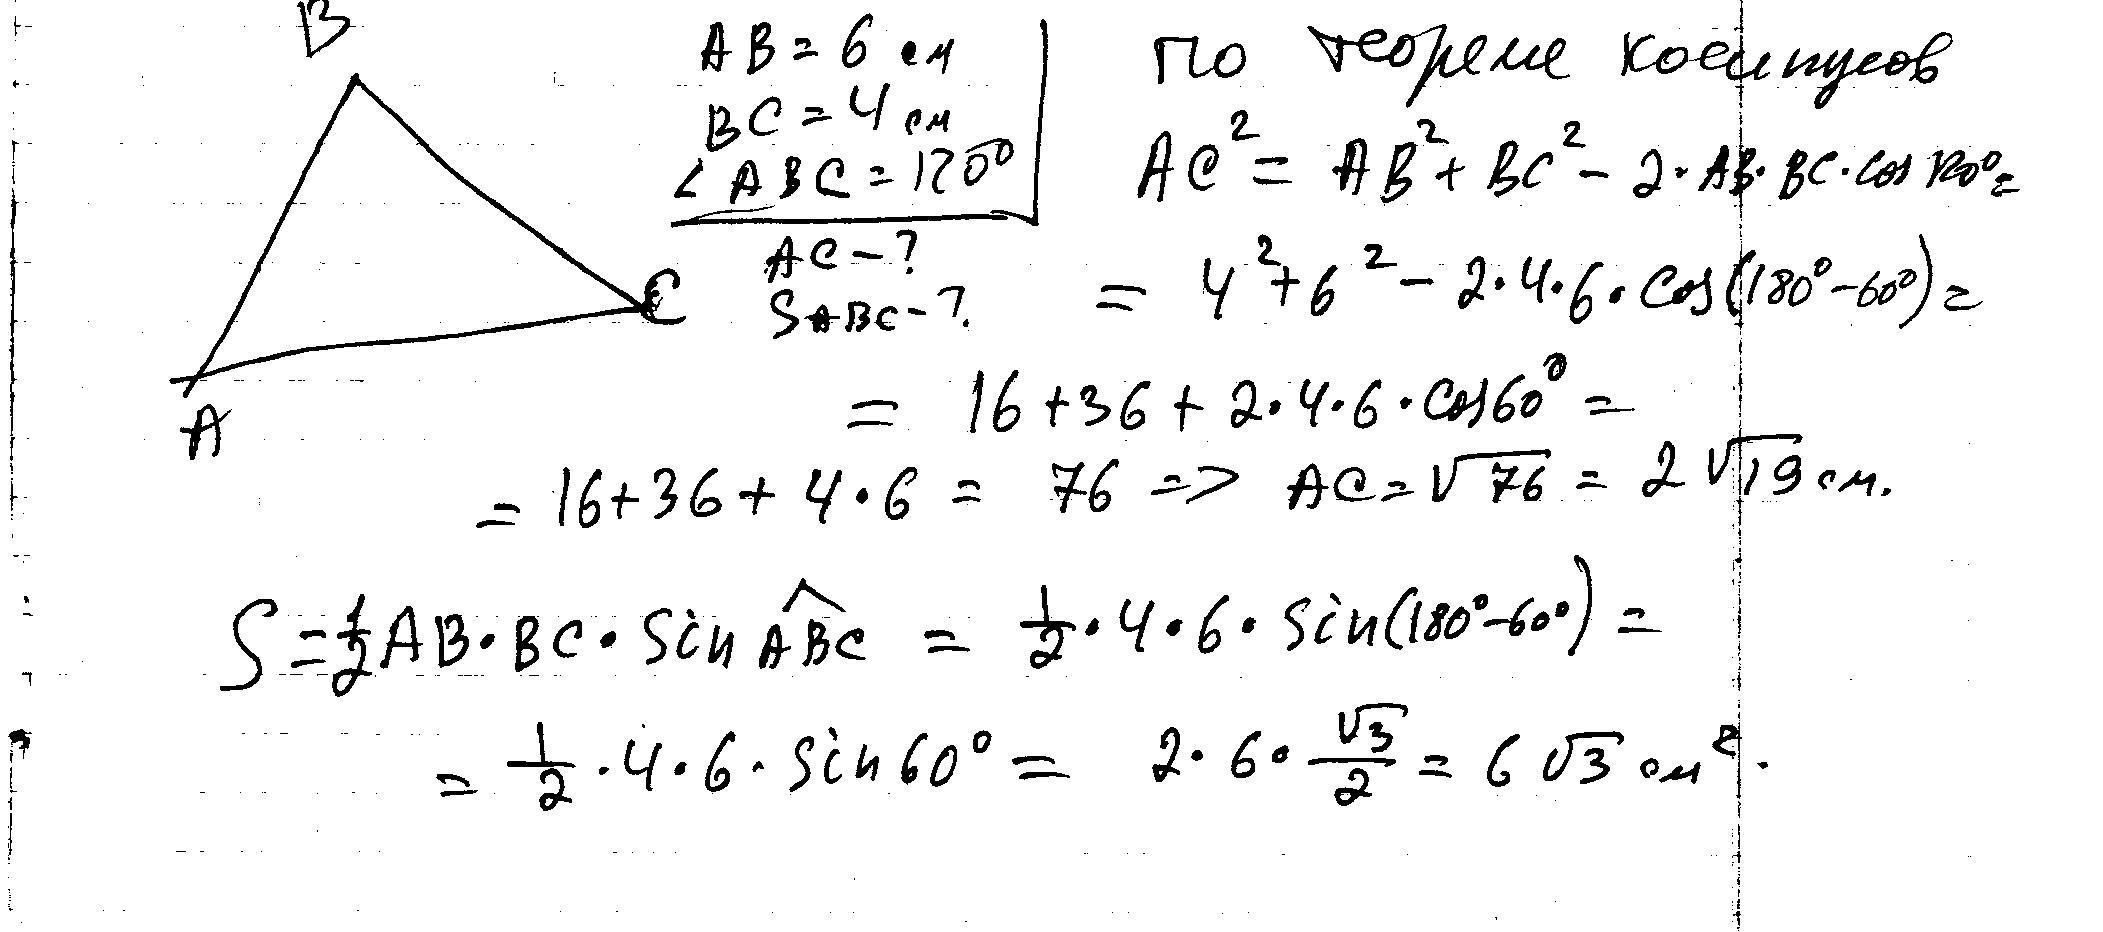 B
AB = 6 см
BC = 4 см
∠ABC = 120°
AC - ?
S ABC - ?
C
A
По теореме косинусов
AC² = AB² + BC² - 2·AB·BC·cos 120° =
= 4² + 6² - 2·4·6·cos(180°-60°) =
= 16 + 36 + 2·4·6·cos60° =
= 16 + 36 + 4·6 = 76 => AC = √76 = 2√19 см.
S = ½ AB·BC·sin ABC = ½·4·6·sin(180°-60°) =
= ½·4·6·sin60° = 2·6·√3/2 = 6√3 см².